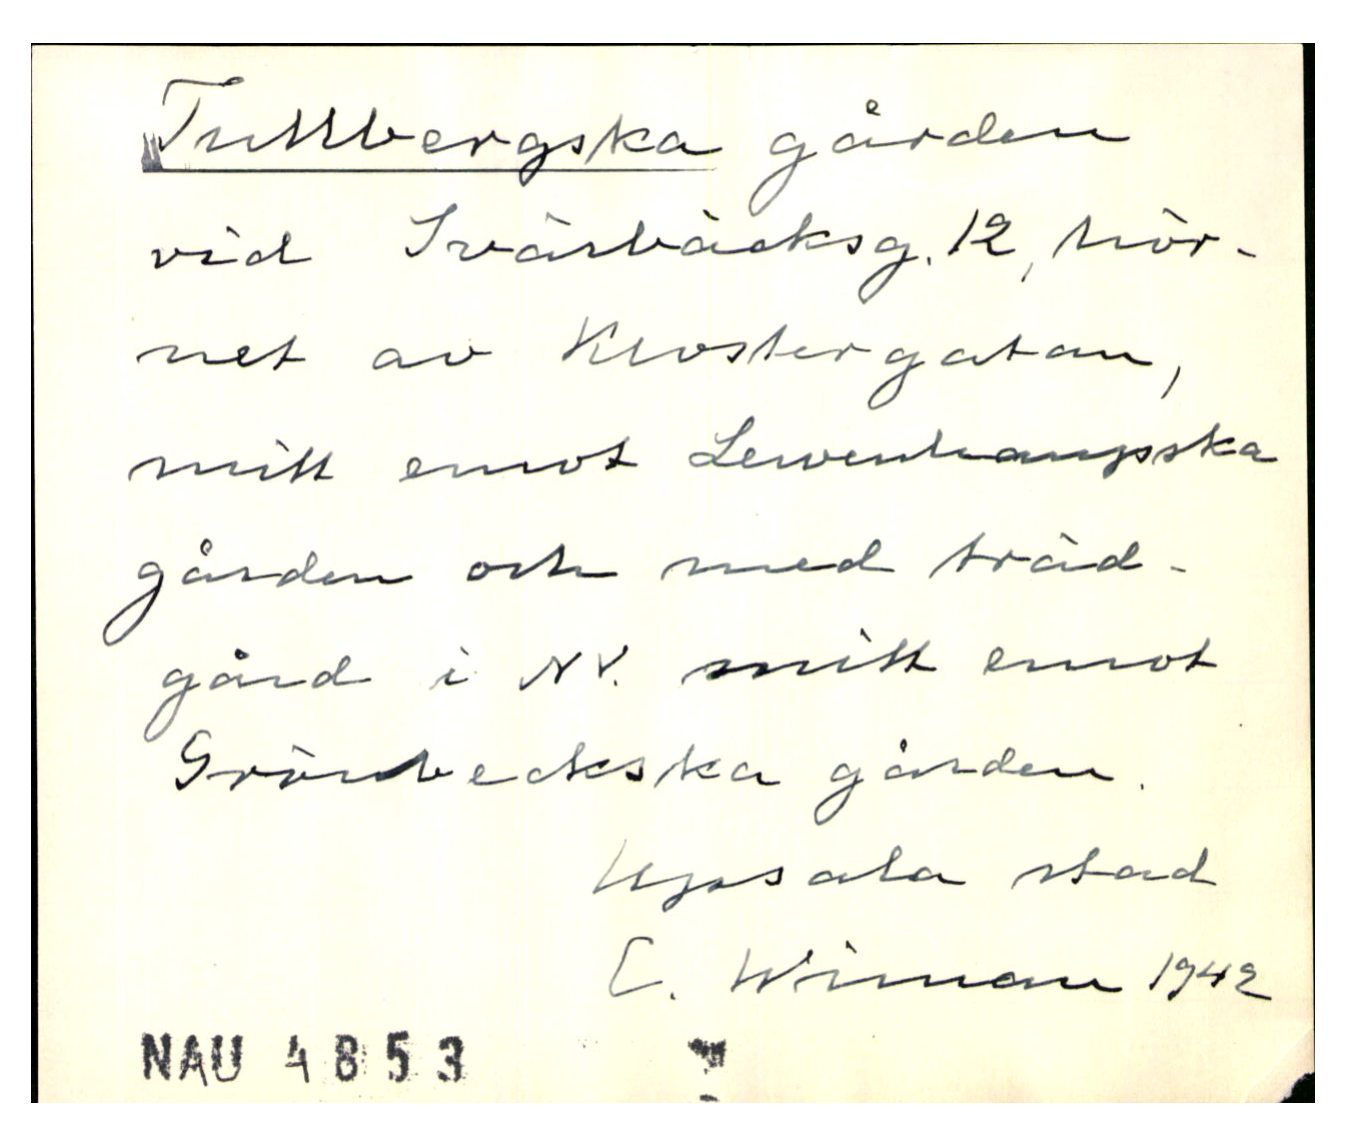 Tullbergska gården
vid Svartbäcksg. 12, hör-
net av Klostergatan,
mitt emot Lewenhaupska
gården och med träd-
gård i NV. mitt emot
Grönbeckska gården.
Uppsala stad
C. Wiman 1942
NAU 4853